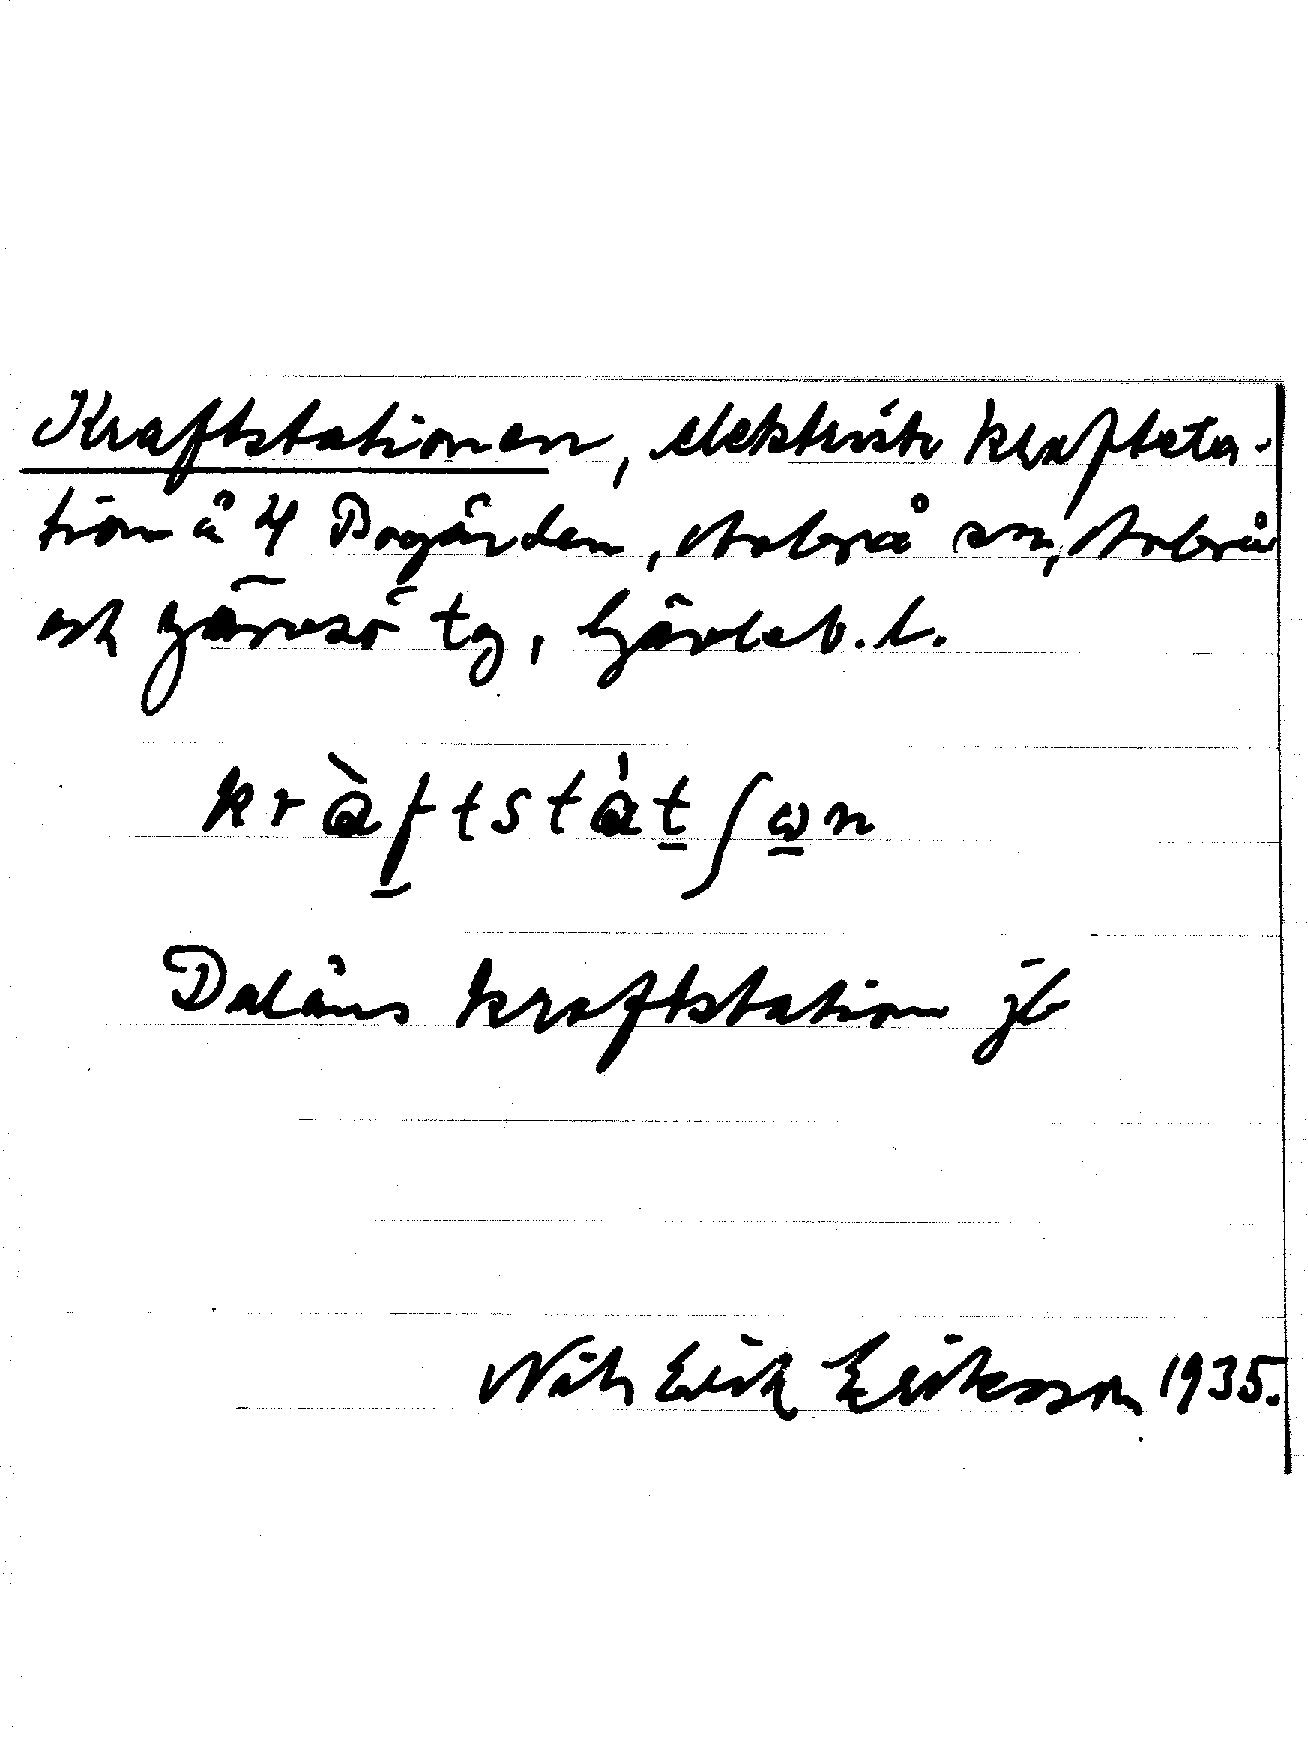 Kraftstationen, elektrisk kraftsta-
tion å 4 Bogården, Arbrå sn, Arbrå
och Järvsö tg, Gävleb. l.
kràftstát∫ωn
Dalåns kraftstation jb
Nils Erik Eriksson 1935.